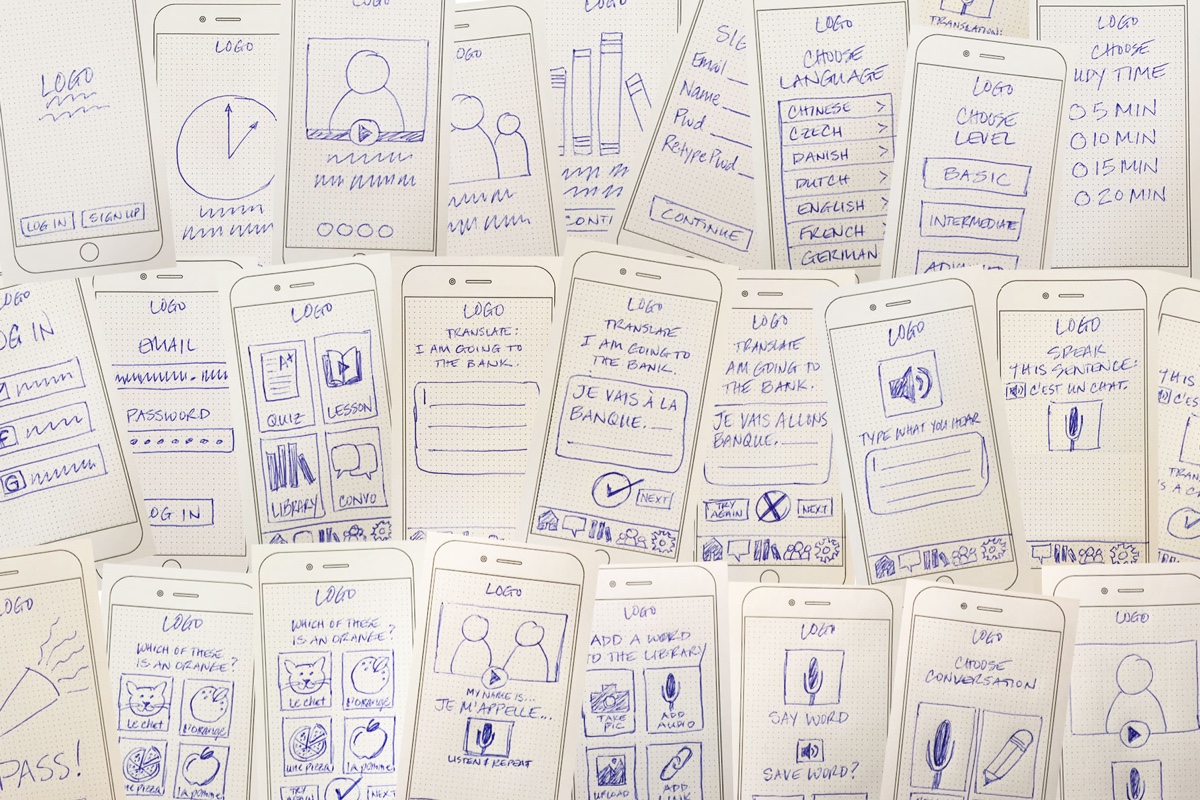 LOGO
LOG IN
SIGN UP
LOGO
LOGO
LOGO
LOGO
CONTI
SIG
Email
Name
Pwd
Retype Pwd
CONTINUE
LOGO
CHOOSE
LANGUAGE
CHINESE >
CZECH >
DANISH >
DUTCH >
ENGLISH >
FRENCH >
GERMAN
TRANSLATION:
LOGO
CHOOSE
LEVEL
BASIC
INTERMEDIATE
LOGO
CHOOSE
UDY TIME
5 MIN
10 MIN
15 MIN
20 MIN
LOGO
OG IN
F
G
LOGO
EMAIL
PASSWORD
OG IN
LOGO
A+
QUIZ
LESSON
LIBRARY
CONVO
LOGO
TRANSLATE:
I AM GOING TO
THE BANK.
LOGO
TRANSLATE
I AM GOING TO
THE BANK.
JE VAIS À LA
BANQUE.
NEXT
LOGO
TRANSLATE
AM GOING TO
THE BANK.
JE VAIS ALLONS
BANQUE.
TRY
AGAIN
NEXT
LOGO
TYPE WHAT YOU HEAR
LOGO
SPEAK
THIS SENTENCE:
C'EST UN CHAT.
THIS
C'ES
TRAN
'S A C
LOGO
PASS!
LOGO
WHICH OF THESE
IS AN ORANGE?
Le chat
L'orange
une pizza
la pomme
LOGO
WHICH OF THESE
IS AN ORANGE?
Le chat
L'orange
une pizza
la pomme
TRY
AGAIN
NEXT
LOGO
MY NAME IS...
JE M'APPELLE...
LISTEN & REPEAT
LOGO
ADD A WORD
TO THE LIBRARY
TAKE
PIC
ADD
AUDIO
UPLOAD
ADD
LINK
LOGO
SAY WORD
SAVE WORD?
LOGO
CHOOSE
CONVERSATION
LOGO